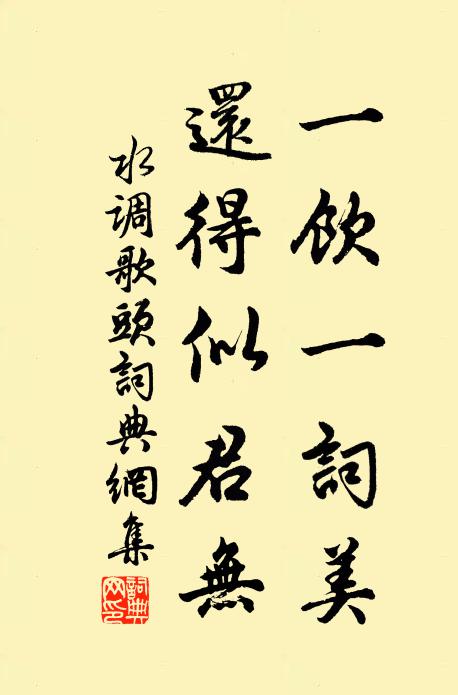 一飲一詞美
還得似君無
水调歌頭詞典網集
詞典網印